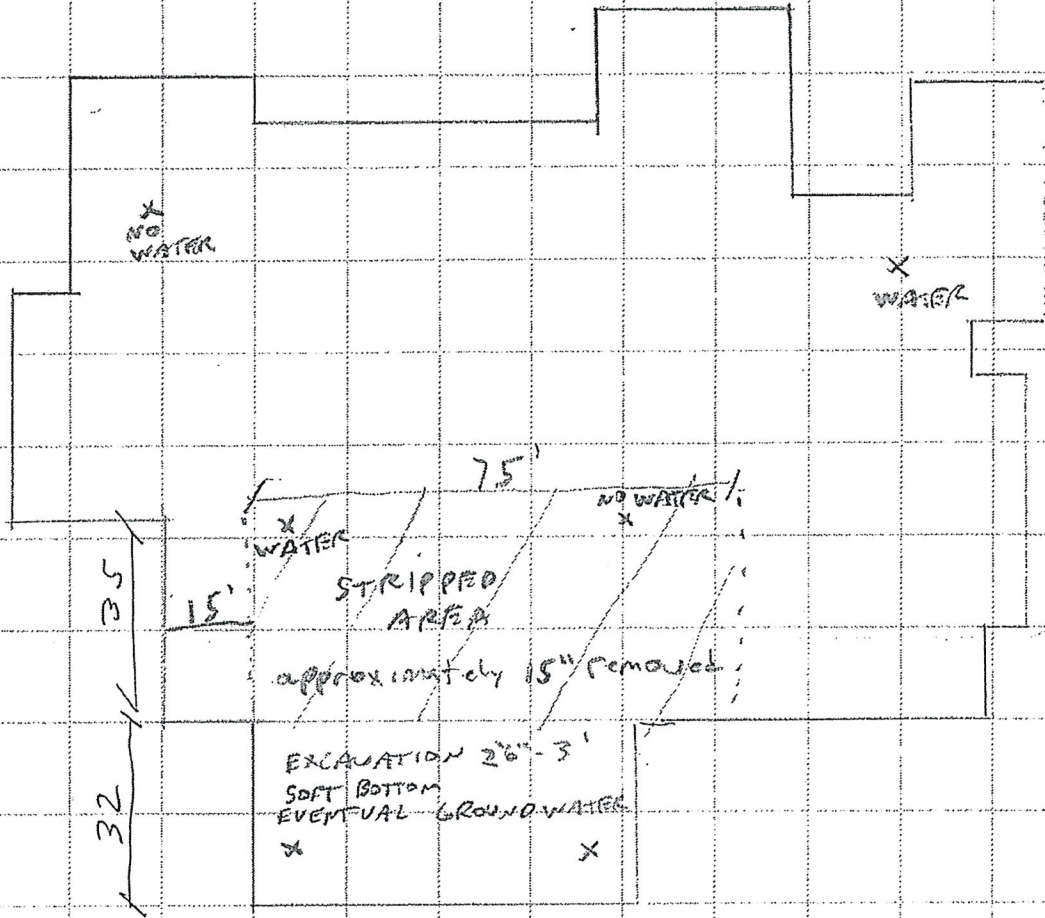 NO
WATER
WATER
75'
NO WATER
WATER
STRIPPED
AREA
35
15'
approximately 15" removed
EXCAVATION 2'6"-3'
SOFT BOTTOM
EVENTUAL GROUNDWATER
32